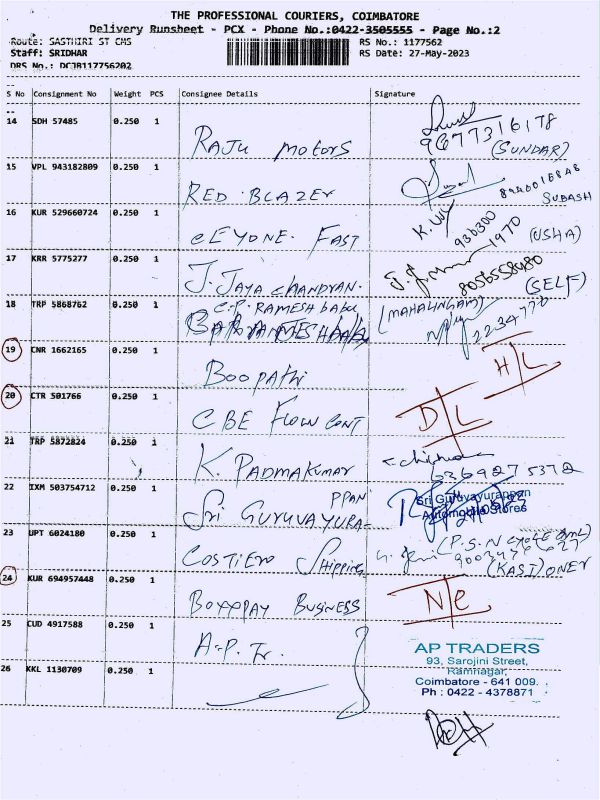 THE PROFESSIONAL COURIERS, COIMBATORE
Delivery Runsheet - PCX - Phone No.:0422-3505555 - Page No.:2
Route: SASTHIRI ST CMS RS No.: 1177562
Staff: SRIDHAR RS Date: 27-May-2023
DRS No.: DCJB117756202
S No Consignment No Weight PCS Consignee Details Signature
14 SDH 57485 0.250 1
RAJU MOTORS 9677316178
(SUNDAR)
15 VPL 943182809 0.250 1
RED BLAZER SUBASH
16 KUR 529660724 0.250 1
eEYONE. FAST K. 930300 1970 (USHA)
17 KRR 5775277 0.250 1
J. JAYA CHANDRAN. 8056558480 (SELF)
18 TRP 5868762 0.250 1
C.P. RAMESH babu (MAHALINGAM)
2234770
19 CNR 1662165 0.250 1
BOOPATHI H/L
20 CTR 501766 0.250 1
CBE FLOW CONT D/L
21 TRP 5872824 0.250 1
K. PADMAKUMAR 6369275372
22 IXM 503754712 0.250 1
PPAN Sri Guruvayurappan
SRI GURUVAYURA- Automobile Stores
23 UPT 6024180 0.250 1
COSTIERO Shipping (P.S.N CYCLE
(KASI) ONER
24 KUR 694957448 0.250 1
BOXXPAY BUSINESS N/C
25 CUD 4917588 0.250 1
A.P. Tr.
AP TRADERS
93, Sarojini Street,
Ramnagar,
26 KKL 1130709 0.250 1
Coimbatore - 641 009.
Ph : 0422 - 4378871